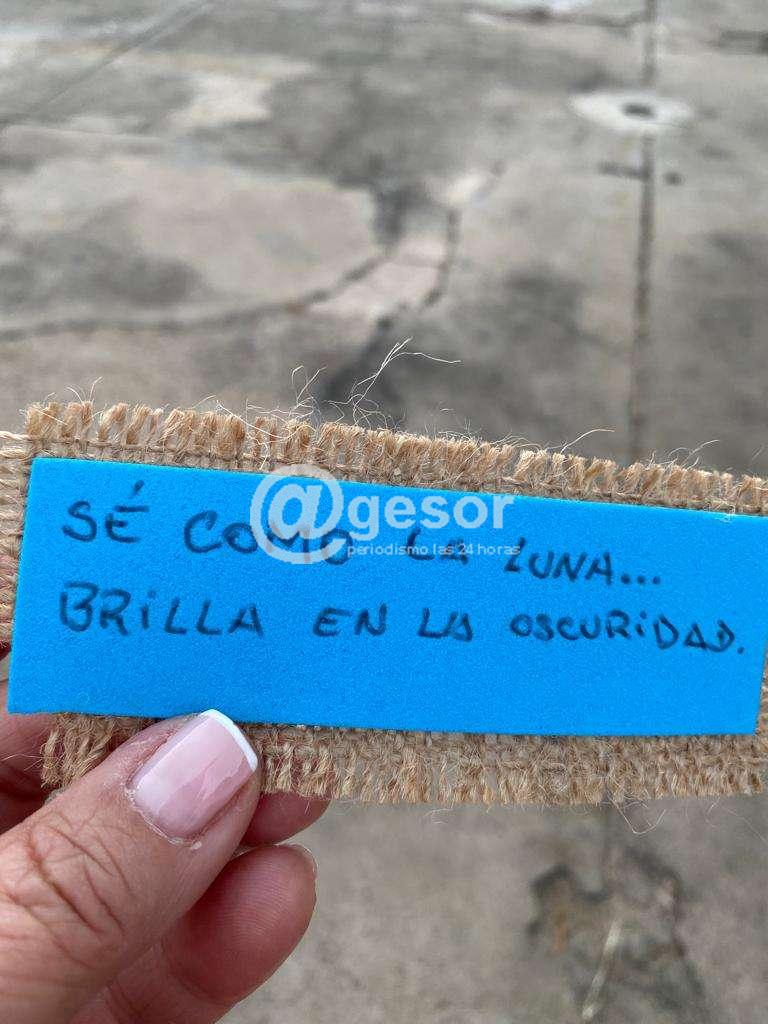 SÉ COMO LA LUNA...
BRILLA EN LA OSCURIDAD.
@gesor
periodismo las 24 horas